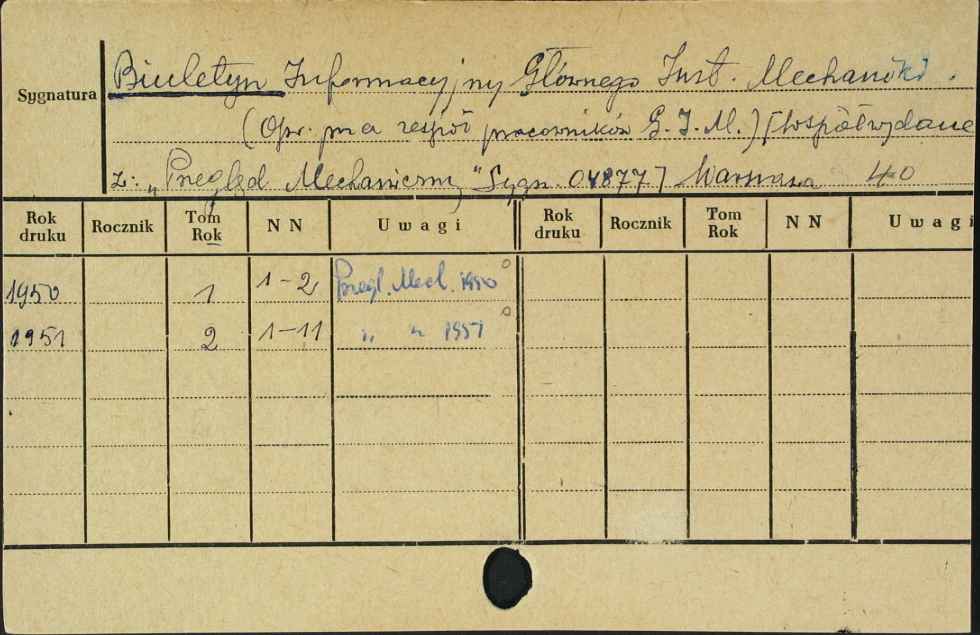 Sygnatura
Biuletyn Informacyjny Głównego Inst. Mechaniki.
(Opr. prze zespół pracowników G.I.M.) [Współwydane
z: „Przegląd Mechaniczny" Sygn. 04877] Warszawa 40
Rok druku Rocznik Tom Rok NN Uwagi Rok druku Rocznik Tom Rok NN Uwagi
1950 1 1-2 Przegl. Mech. 1950
1951 2 1-11 „ „ 1951